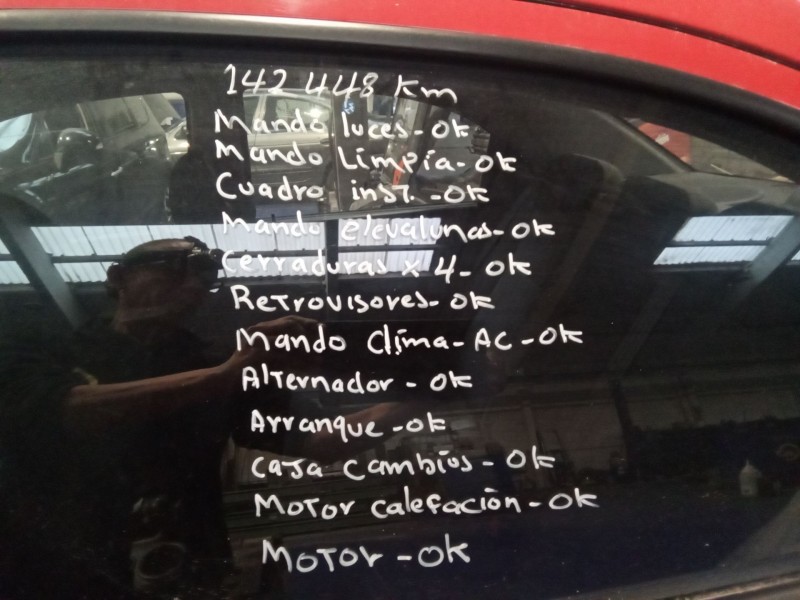 142 448 Km
Mando luces - ok
Mando Limpia - ok
Cuadro inst. - ok
Mando elevalunas - ok
Cerraduras x 4 - ok
Retrovisores - ok
Mando Clima - AC - ok
Alternador - ok
Arranque - ok
caja cambios - ok
Motor calefación - ok
Motor - ok